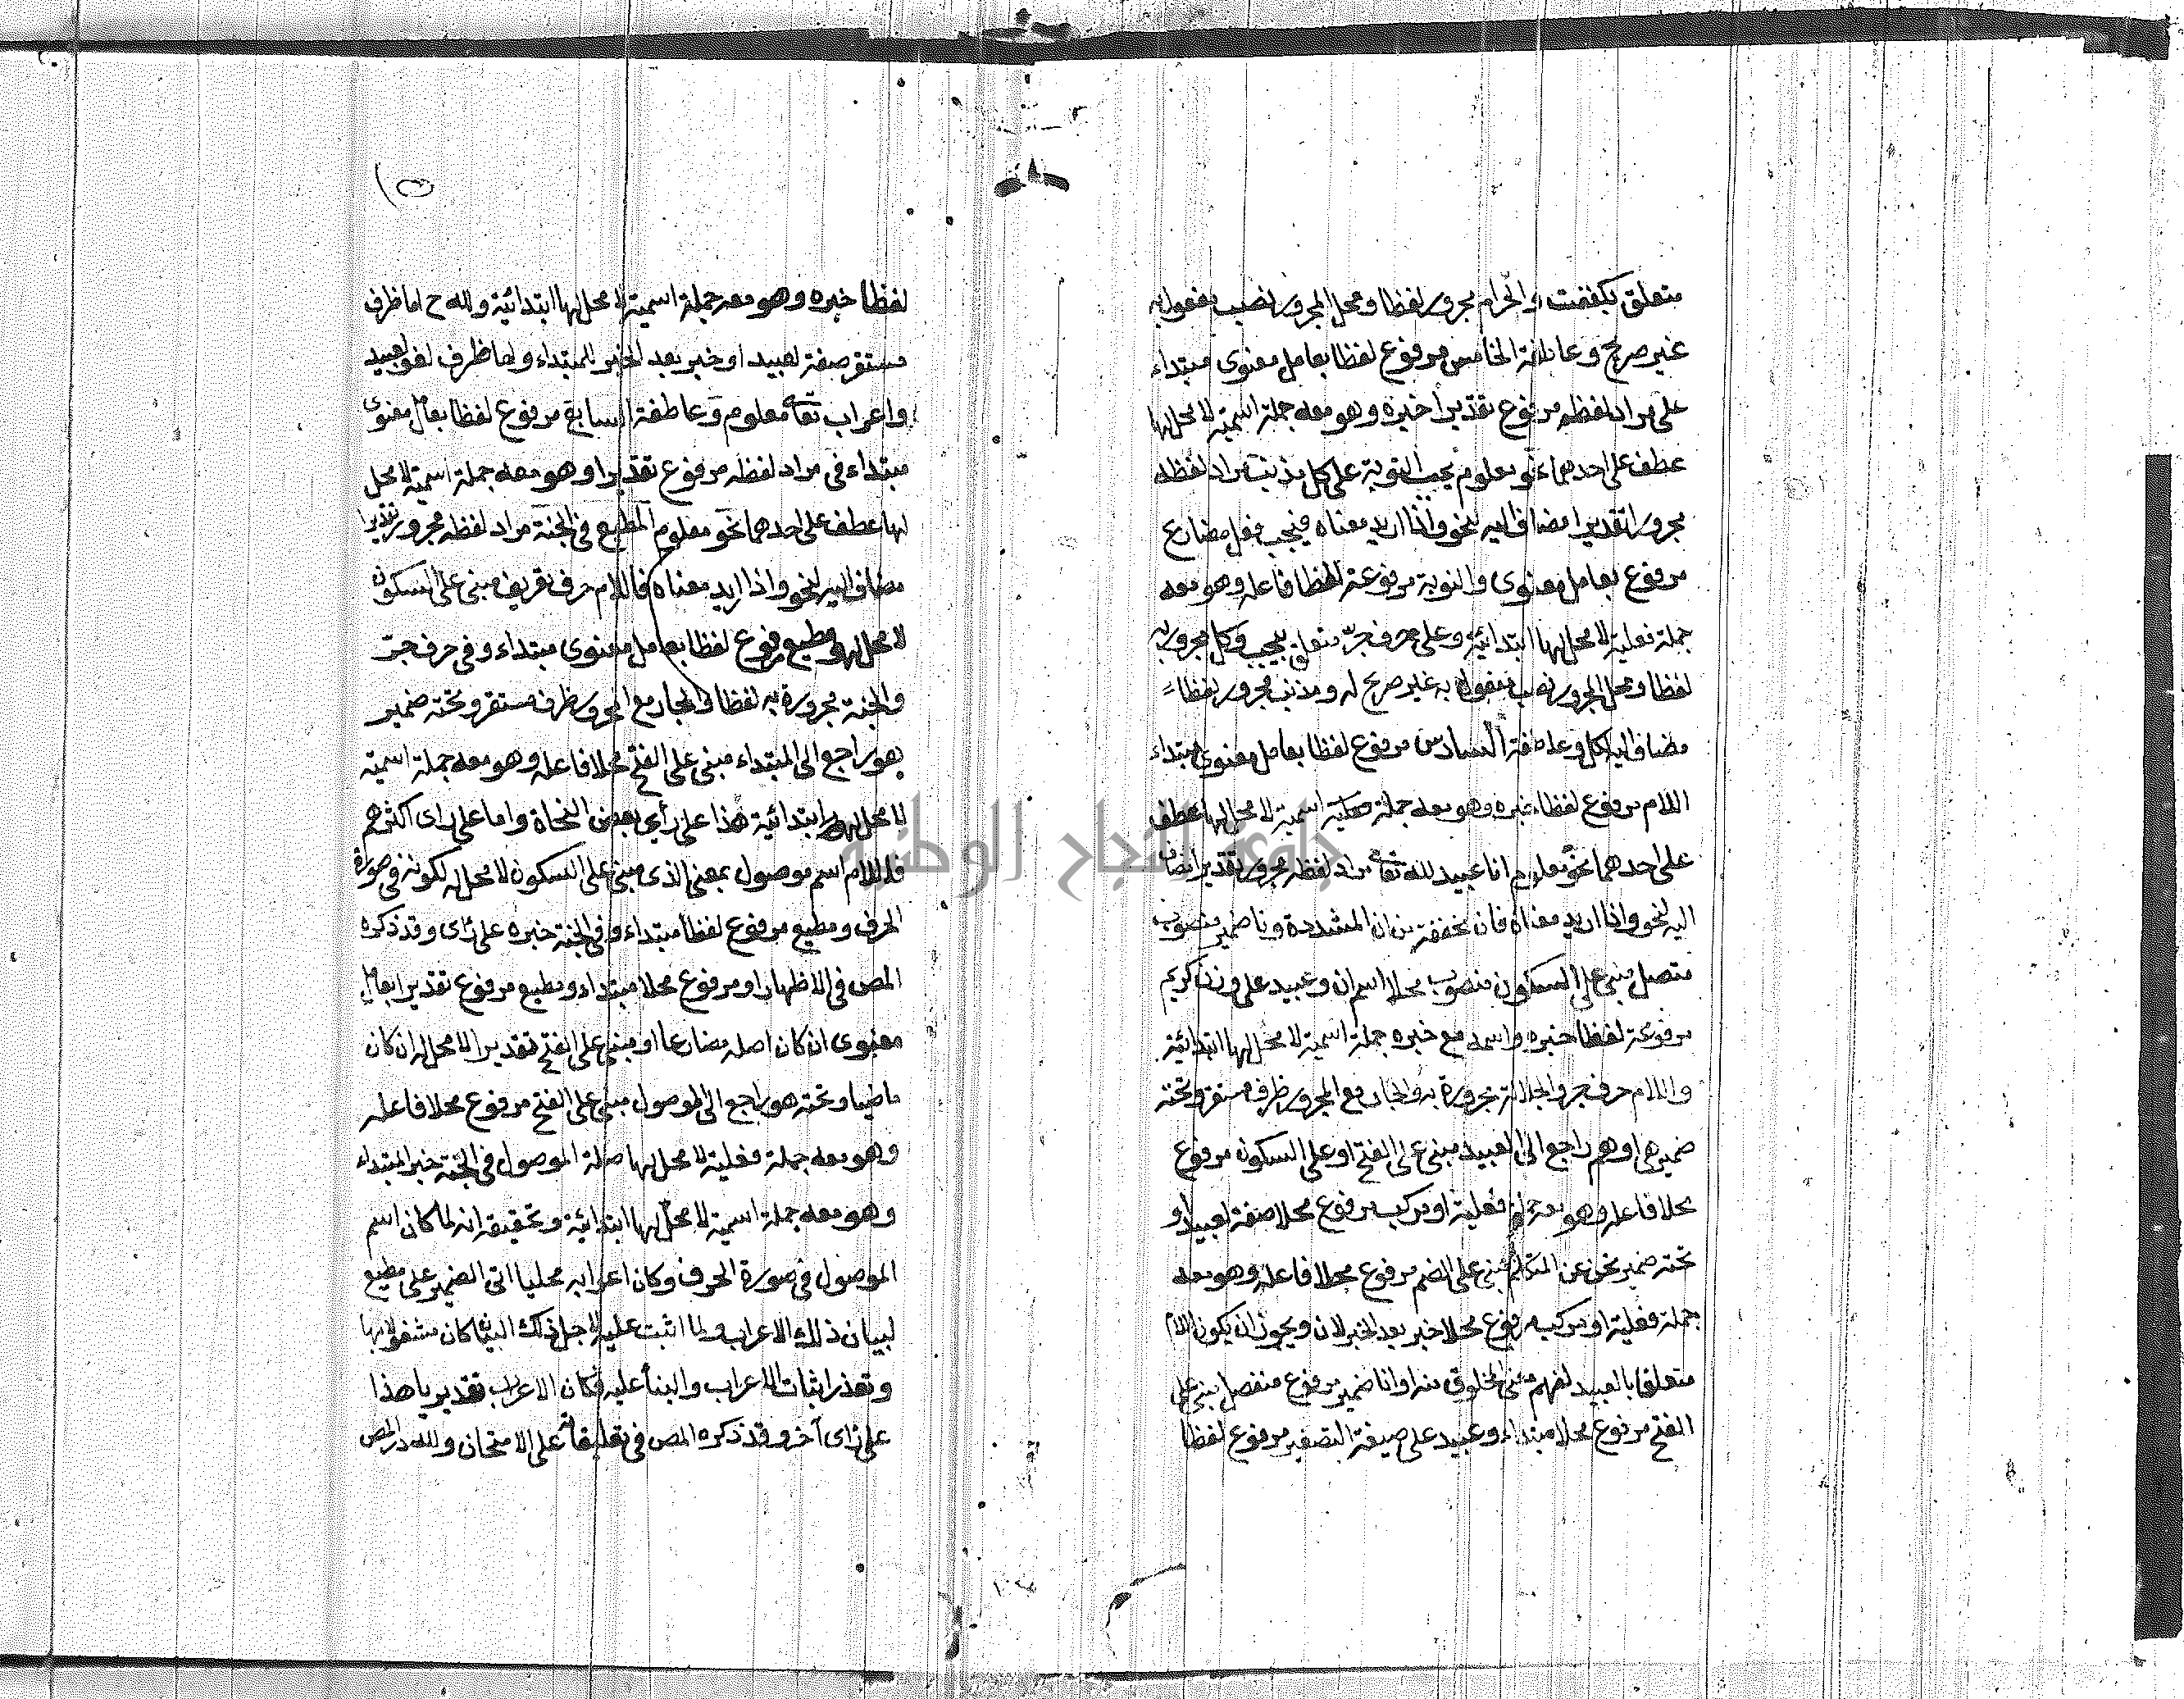 متعلق بكففت والحرام مجرور لفظا ومحل المجرور نصب مفعول به
غير صريح وعاطفة الخامس مرفوع لفظا بعامل معنوى مبتداء
على مراد لفظه مرفوع تقديرا خبره وهو معه جملة اسمية لا محل لها
عطف على احدهما نحو معلوم يجب التوبة على كل مذنب مراد لفظه
مجرور تقديرا مضاف اليه لنحو واذا اريد معناه فيجب فعل مضارع
مرفوع بعامل معنوى والتوبة مرفوعة لفظا فاعله وهو معه
جملة فعلية لا محل لها ابتدائية وعلى حرف جر متعلق بيجب وكل مجرور به
لفظا ومحل المجرور نصب مفعول به غير صريح له ومذنب مجرور لفظا
مضاف اليه لكل وعاطفة السادس مرفوع لفظا بعامل معنوى مبتداء
اللام مرفوع لفظا خبره وهو معه جملة اسمية لا محل لها عطف
على احدهما نحو معلوم انا عبيد لله تعا مراد لفظه مجرور تقديرا مضاف
اليه لنحو واذا اريد معناه فان مخففة من ان المشددة ونا ضمير منصوب
متصل مبنى على السكون منصوب محلا اسم ان وعبيد على وزن كريم
مرفوعة لفظا خبره واسمه مع خبره جملة اسمية لا محل لها ابتدائية
واللام حرف جر والجلالة مجرورة به والجار مع المجرور ظرف مستقر وتحته
ضمير هى او هم راجع الى العبيد مبنى على الفتح او على السكون مرفوع
محلا فاعله وهو معه جملة فعلية او مركب مرفوع محلا صفة لعبيد او
تحته ضمير نحن عن المتكلم مبنى على الضم مرفوع محلا فاعله وهو معه
جملة فعلية او مركب مرفوع محلا خبر بعد الخبر لان ويجوز ان يكون اللام
متعلقا بالعبيد لفهم معنى المخلوق منه او انا ضمير مرفوع منفصل مبنى على
الفتح مرفوع محلا مبتداء وعبيد على صيغة التصغير مرفوع لفظا
١٥
لفظا خبره وهو معه جملة اسمية لا محل لها ابتدائية ولله ح اما ظرف
مستقر صفة لعبيد او خبر بعد الخبر للمبتداء واما ظرف لغو لعبيد
واعراب تعا معلوم وعاطفة السابع مرفوع لفظا بعامل معنوى
مبتداء فى مراد لفظه مرفوع تقديرا وهو معه جملة اسمية لا محل
لها عطف على احدهما نحو معلوم المطيع فى الجنة مراد لفظه مجرور تقديرا
مضاف اليه لنحو واذا اريد معناه فاللام حرف تعريف مبنى على السكون
لا محل له ومطيع مرفوع لفظا بعامل معنوى مبتداء وفى حرف جر
والجنة مجرورة به لفظا والجار مع المجرور ظرف مستقر وتحته ضمير
هو راجع الى المبتداء مبنى على الفتح محلا فاعله وهو معه جملة اسمية
لا محل لها ابتدائية هذا على رأي بعض النحاة واما على راى اكثرهم
فاللام اسم موصول بمعنى الذى مبنى على السكون لا محل له لكونه فى صورة
الحرف ومطيع مرفوع لفظا مبتداء وفى الجنة خبره على رأى وقد ذكره
المص فى الاظهار او مرفوع محلا مبتداء ومطيع مرفوع تقديرا بعامل
معنوى ان كان اصله مضارعا او مبنى على الفتح تقديرا لا محل له ان كان
ماضيا وتحته هو راجع الى الموصول مبنى على الفتح مرفوع محلا فاعله
وهو معه جملة فعلية لا محل لها صلة الموصول فى الجنة خبر المبتداء
وهو معه جملة اسمية لا محل لها ابتدائية وتحقيقه انه لما كان اسم
الموصول فى صورة الحرف وكان اعرابه محليا اتى الضمير على مطيع
لبيان ذلك الاعراب ولما اثبت عليه لاجل ذلك البيان كان مشغولا بها
وتعذر اثبات الاعراب والبناء عليه فكان الاعراب تقديريا هذا
على رأى آخر وقد ذكره المص فى تعليقاته على الامتحان ولله در المص
جامعة النجاح الوطنية